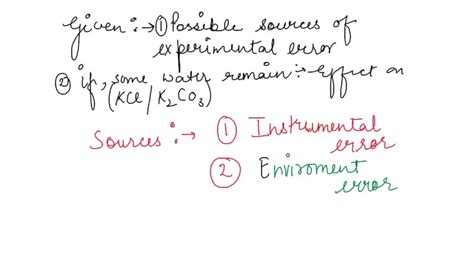 Given :→ ① Possible sources of
experimental error
② if, some water remain :- Effect on
(KCl / K2CO3)
Sources :→ ① Instrumental
error
② Enviroment
error